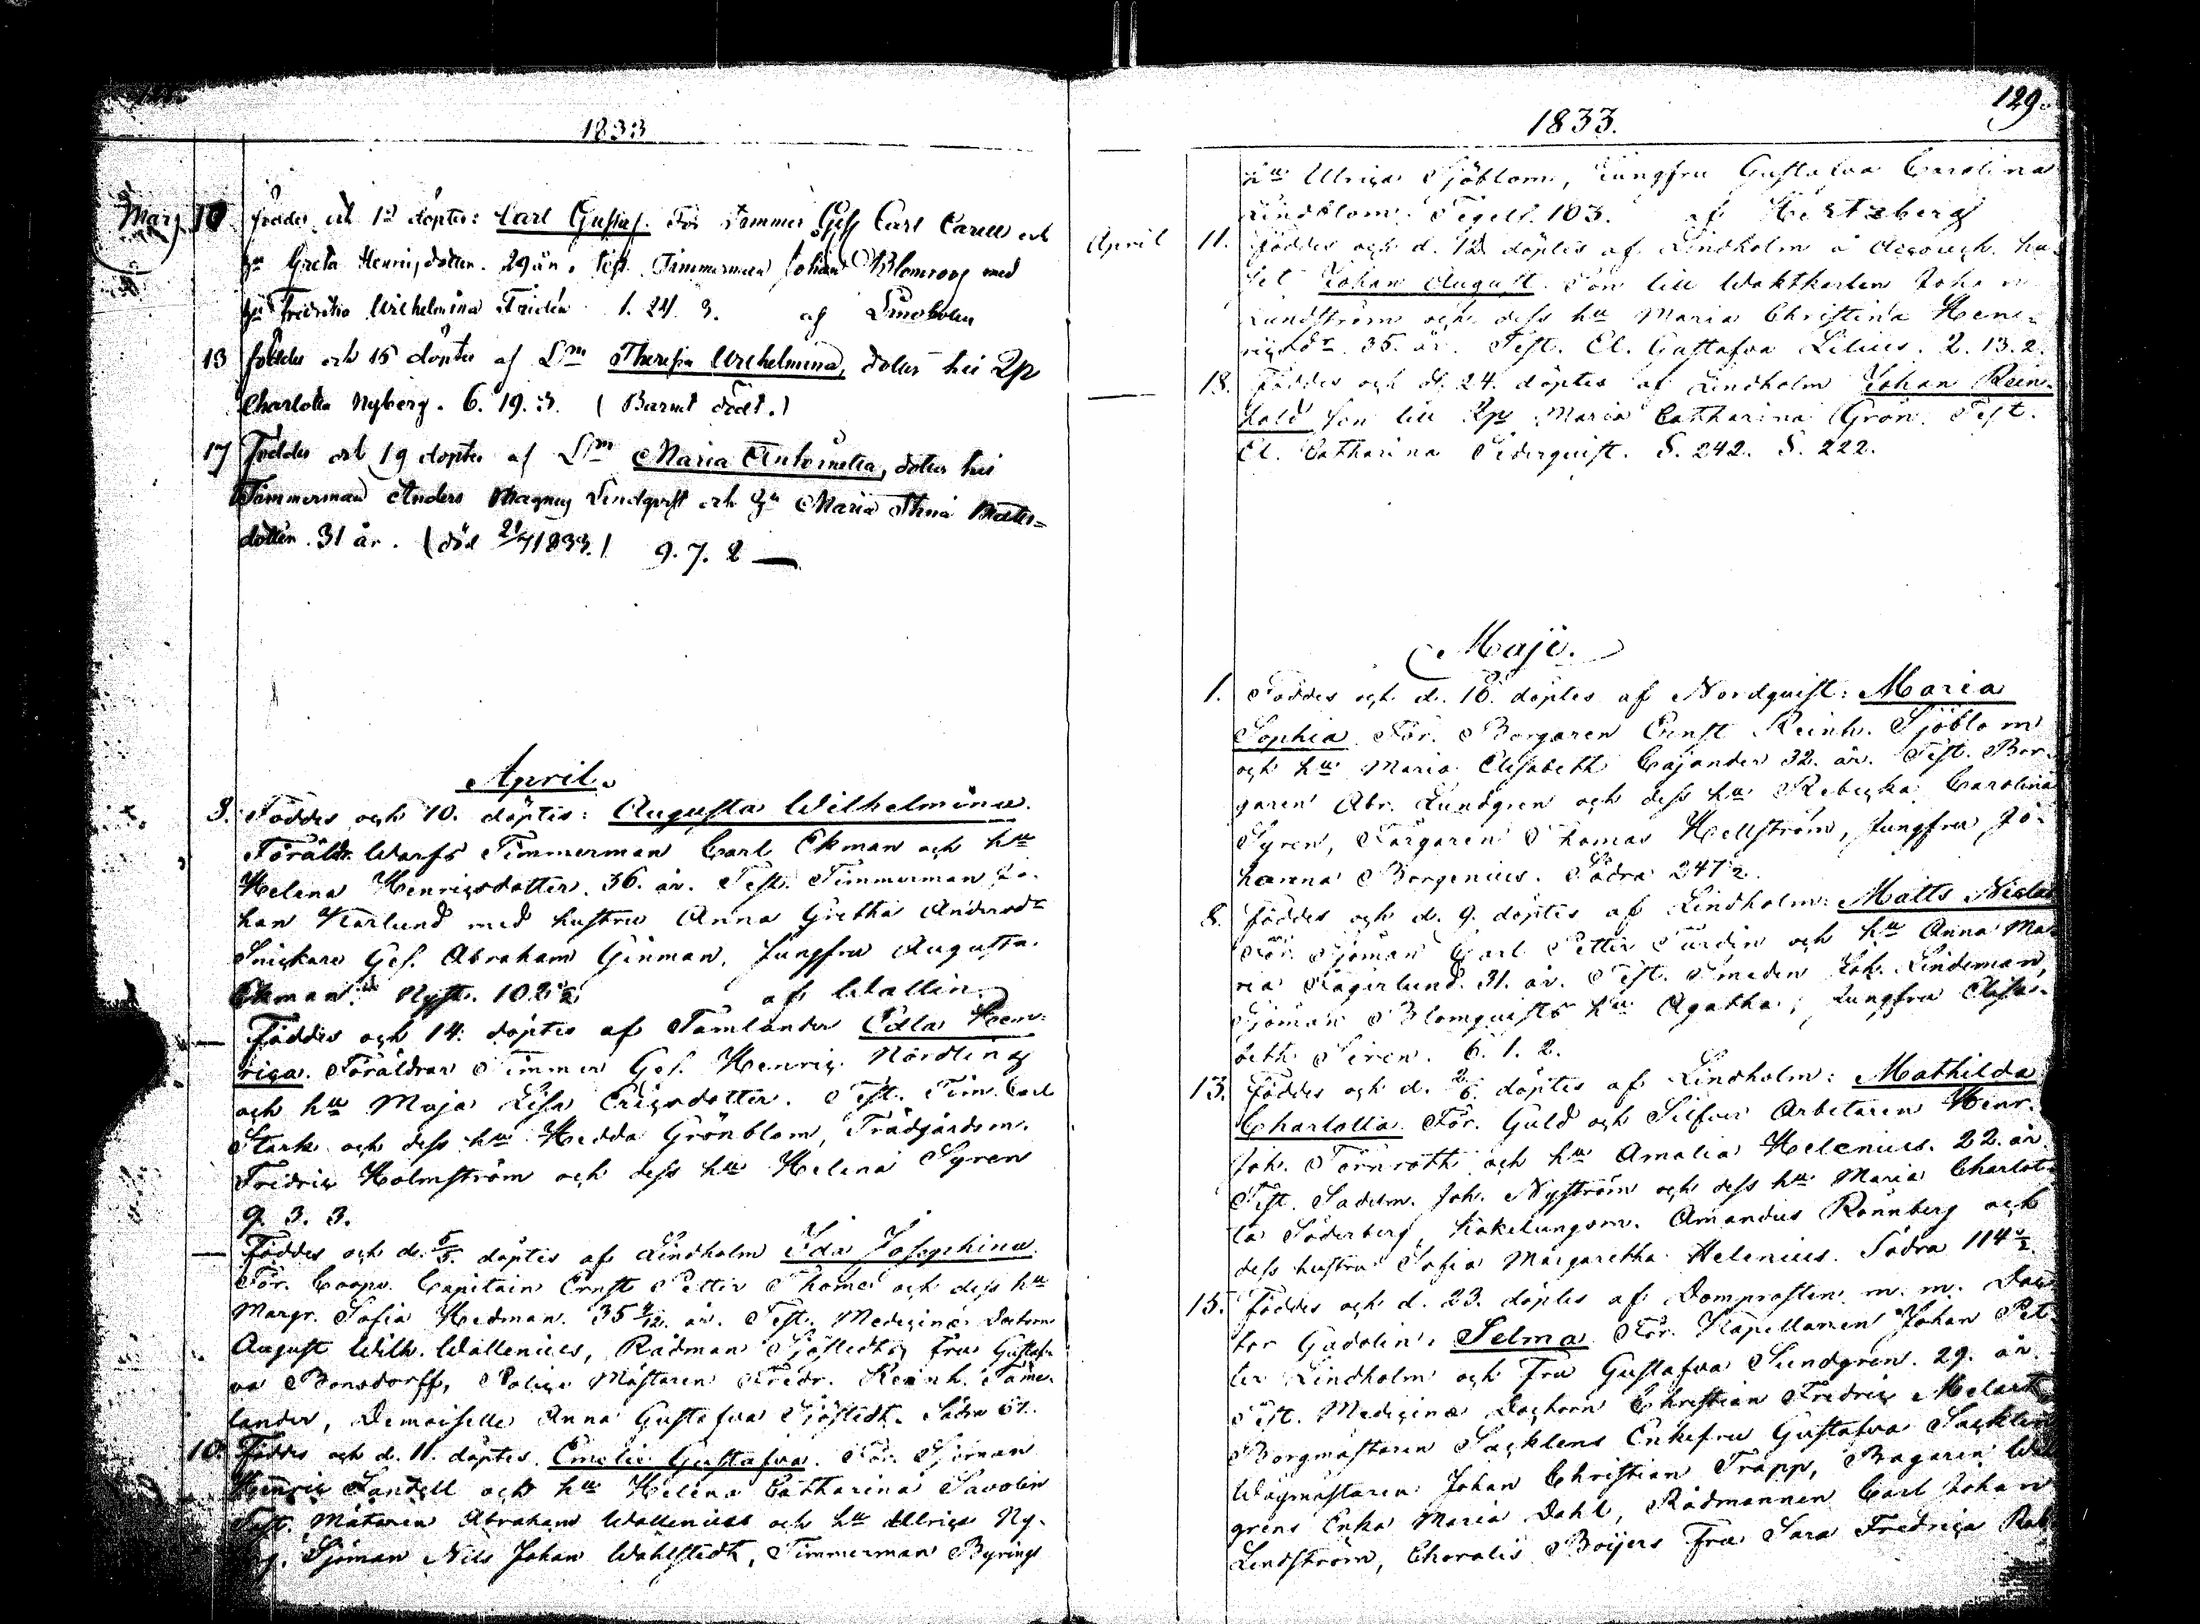 1833
Mars 10 föddes och 12 döptes: Carl Gustaf. För Timmer Gess Carl Carell och
hu Greta Henrisdotter. 29 år. Test. Timmerman Johan Blomroos med
hu Fredrika Wilhelmina Fridén 1. 24. 3. af Lindholm
13 föddes och 15 döptes af Lm Theresia Wilhelmina, dotter till Qp
Charlotta Nyberg. 6. 19. 3. (Barnet dödt.)
17 Föddes och 19 döptes af Lm Maria Antoinetta, dotter till
Timmerman Anders Magnus Lindqvist och hu Maria Stina Matts=
dotter. 31 år. (död 21/7 1833.) 9. 7. 2 —
April.
8. Föddes och 10. döptes: Augusta Wilhelmina.
Föräldr. Warfs Timmerman Carl Ekman och hu
Helena Henricsdotter. 36. år. Test. Timmerman Jo-
han Karlund med hustru Anna Gretha Andersdr
Snickare Ges. Abraham Ginman, Jungfru Augusta
Ekman. Nyst. 102 1/2 af Wallin.
— Föddes och 14. döptes af Tämlander Edla Hen-
rica. Föräldrar Timmer Ges. Henric Nordling
och hu Maja Lisa Ericsdotter. Test. Tim. Carl
Stark och dess hu Hedda Grönblom, Trädgårdsm.
Fredric Holmström och dess hu Helena Syren
9. 3. 3.
— Föddes och d. 5/5. döptes af Lindholm Ida Josephina
För. Coopv. Capitain Ernst Petter Thomé och dess hu
Margr. Sofia Hedman. 35 4/12 år. Test. Medicinæ Doctorn
August Wilh. Wallenius, Rådman Sjöstedts fru Gustaf-
va Bonsdorff, Police Mästaren Fredr. Reinh. Täme-
lander, Demoiselle Anna Gustafva Sjöstedt. Södra 61.
10. Föddes och d. 11. döptes Emelie Gustafva. För. Sjöman
Henric Sandell och hu Helena Catharina Savolin
Test. Mätaren Abraham Wallenius och hu Ulrica Ny-
berg. Sjöman Nils Johan Wahlstedt, Timmerman Byrings
129.
1833.
hu Ulrica Sjöblom, Jungfru Gustafva Carolina
Lindblom. Tegels. 103. af Hertzberg
April 11. Föddes och d. 12 döptes af Lindholm å Accouch. hu-
set Johan August. Son till Waktkarlen Johan
Lundström och dess hu Maria Christina Hen-
ricsdr 35. år. Test. El. Gustafva Lilius. 2. 13. 2.
18. Föddes och d. 24. döptes af Lindholm Johan Rein-
hold son till Qp Maria Catharina Grön. Test.
El. Catharina Cederquist. S. 242. S. 222.
Maji.
1. Föddes och d. 16. döptes af Nordquist: Maria
Sophia. För. Borgaren Ernst Reinh. Sjöblom
och hu Maria Elisabeth Cajander 32. år. Test. Bor-
garen Abr. Lundgren och dess hu Rebecka Carolina
Syren, Färgaren Thomas Hellström, Jungfru Jo-
hanna Borgenius. Södra 247 1/2.
8. föddes och d. 9. döptes af Lindholm: Matts Niclas
För. Sjöman Carl Petter Turdin och hu Anna Ma-
ria Fagerlund. 31. år. Test. Smeden Joh. Lindeman,
Sjöman Blomquists hu Agatha, Jungfru Elisa-
beth Siren. 6. 1. 2.
13. föddes och d. 2/6. döptes af Lindholm: Mathilda
Charlotta. För. Guld och Silfver Arbetaren Henr.
Joh. Törnroth och hu Amalia Helenius. 22. år.
Test. Sadelm. Joh. Nyström och dess hu Maria Charlot-
ta Söderberg, Kakelungsm. Amandus Rönnberg och
dess hustru Sofia Margaretha Helenius. Södra 114 1/2.
15. föddes och d. 23. döptes af Domprosten m. m. Doc-
tor Gadolin. Selma. För. Kapellanen Johan Pet-
ter Lindholm och Fru Gustafva Sundgren. 29. år.
Test. Medicinæ Doctorn Christian Fredric Melart
Borgmästaren Sacklens Enkefru Gustafva Sacklen
Wågmästaren Johan Christian Trapp, Bagaren Wal-
grens Enka Maria Dahl, Rådmannen Carl Johan
Lindström, Choralis Boijers Fru Sara Fredrica